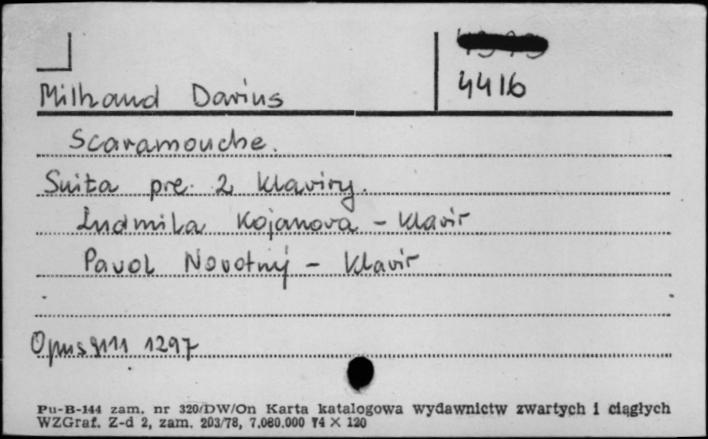 4416
Milhaud Darius
Scaramouche.
Suita pre 2 klaviry.
Ludmila Kojanova – klavír
Pavol Novotný – klavír
Opus 9111 1297
Pu-B-144 zam. nr 320/DW/On Karta katalogowa wydawnictw zwartych i ciągłych
WZGraf. Z-d 2, zam. 203/78, 7.080.000 74 X 120